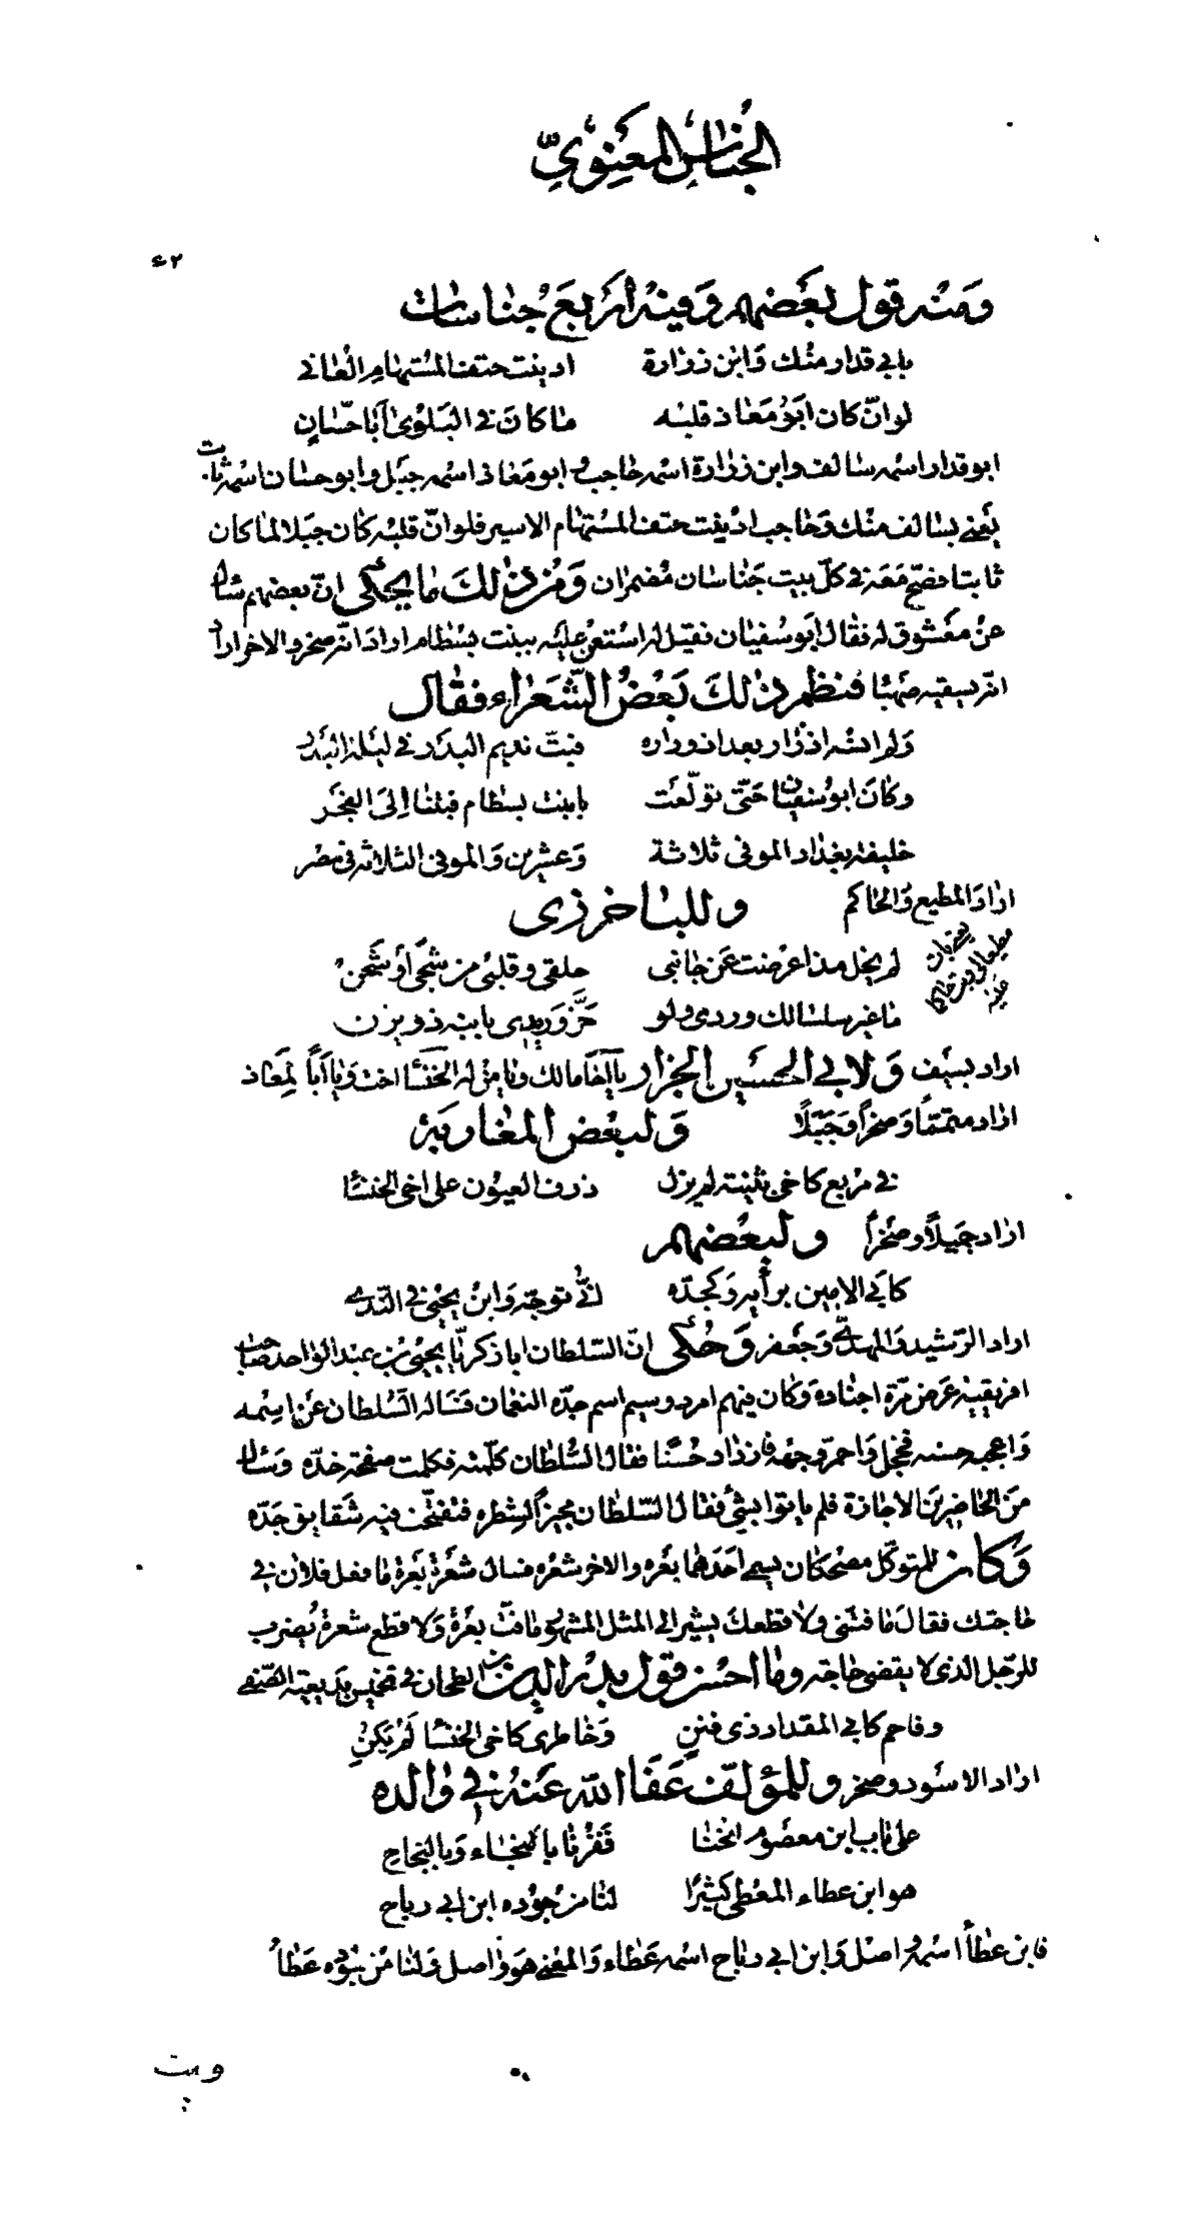 الجناس المعنوي
٤٢
ومنه قول بعضهم وفيه أربع جناسات
بابي قدار منك وابن زرارة ادينت حتف المستهام العاني
لو انّ كان ابو معاذ قلبه ما كان في البلوى أبا حسّان
ابو قدار اسمه سالف وابن زرارة اسمه حاجب وابو معاذ اسمه جبل وابو حسان اسمه ثابت
يعني بسالف منك وحاجب ادينت حتف المستهام الاسير فلو انّ قلبه كان جبلا لما كان
ثابتا فصّح معه في كلّ بيت جناسان مضمران ومن ذلك ما يحكى انّ بعضهم سال
عن معشوق له فقال ابو سفيان فقيل له استعن عليه ببنت بسطام اراد انّه صخر والاخر اراد
انّه يسقيه صهبا فنظم ذلك بعض الشعراء فقال
ولم انسه اذ زار بعد ازوراره فبتّ نديم البدر في ليلة البدر
وكان ابو سفيان حتّى تولّعت بابنت بسطام فبتنا إلى الفجر
خليفة بغداد الموفي ثلاثة وعشرين والموفي الثلاثة في مصر
اراد المطيع والحاكم وللباخرزي
لم يخل مذ اعرضت عن جانبي حلقي وقلبي من شجى أو شجن
ما غير سلسالك وردي ولو حزّ وريدي بابنه ذو يزن
اراد بسيف ولابي الحسين الجزار يا أخا مالك ويا من له الخنسا اخت ويا أبا لمعاذ
اراد متمماً وصخراً وجبلاً ولبعض المغاربة
في مربع كاخي بثينة لم يزل ذرف العيون على اخي الخنسا
اراد جميلاً وصخراً ولبعضهم
كابي الامين برأيه وكجدّه انّى توجّه وابن يحيى في النّدى
اراد الرشيد والمهديّ وجعفر وحكى انّ السّلطان ابا زكريّا يحيى بن عبد الواحد صاحب
افريقية عرض مرّة اجناده وكان فيهم امرد وسيم اسم جدّه النعمان فساله السّلطان عن اسمه
واعجبه حسنه فخجل واحمرّ وجهه فازداد حسنا فقال السّلطان كلّمته فكلمت صفحة خدّه وسال
من الحاضرين الاجازة فلم ياتوا بشئ فقال السّلطان مجيزاً لشطره فتفتّحت فيه شقايق جدّه
وكان للمتوكّل مضحكان يسمى احدهما بعره والاخر شعره فسال شعرة بعرة ما فعل فلان في
حاجتك فقال ما فتّني ولا قطعك يشير الى المثل المشهور ما فتّ بعرة ولا قطع شعرة يضرب
للرّجل الذي لا يقضي حاجته وما احسن قول بدر الدين بن الطحان في تخميس بديعية الصّفي
وفاحم كابي المقداد ذي فنن وخاطري كاخي الخنسا لم يكن
اراد الاسود وصخر وللمؤلف عفا الله عنه في والده
على باب ابن معصوم انخنا ففزنا بالنجاء وبالنجاح
هو ابن عطاء المعطي كثيرًا لنا من جوده ابن ابي رباح
فابن عطاء اسمه واصل وابن ابي رباح اسمه عطاء والمعنى هو واصل ولنا من جوده عطاء